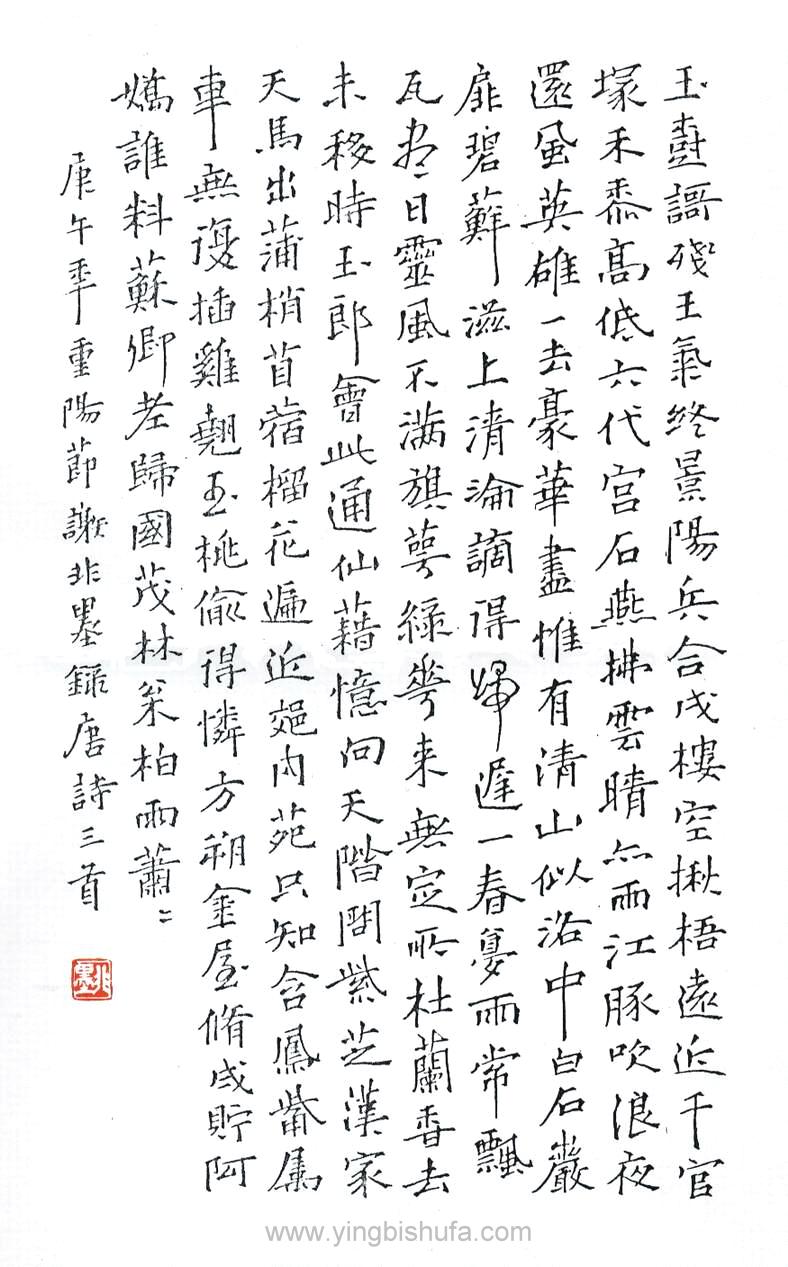 玉樹謌殘王氣終景陽兵合戍樓空楸梧遠近千官
塚禾黍高低六代宮石燕拂雲晴亦雨江豚吹浪夜
還風英雄一去豪華盡惟有清山似洛中白石巖
扉碧蘚滋上清淪謫得歸遲一春夢雨常飄
瓦盡日靈風不滿旗萼綠華来無定所杜蘭香去
未移時玉郎會此通仙藉憶向天階問紫芝漢家
天馬出蒲梢苜蓿榴花遍近郊内苑只知含鳳觜属
車無復插雞翹玉桃偷得憐方朔金屋脩成貯阿
嬌誰料蘇卿老歸國茂林松柏雨蕭〻
庚午年重陽節謝非墨錄唐詩三首
非墨
www.yingbishufa.com